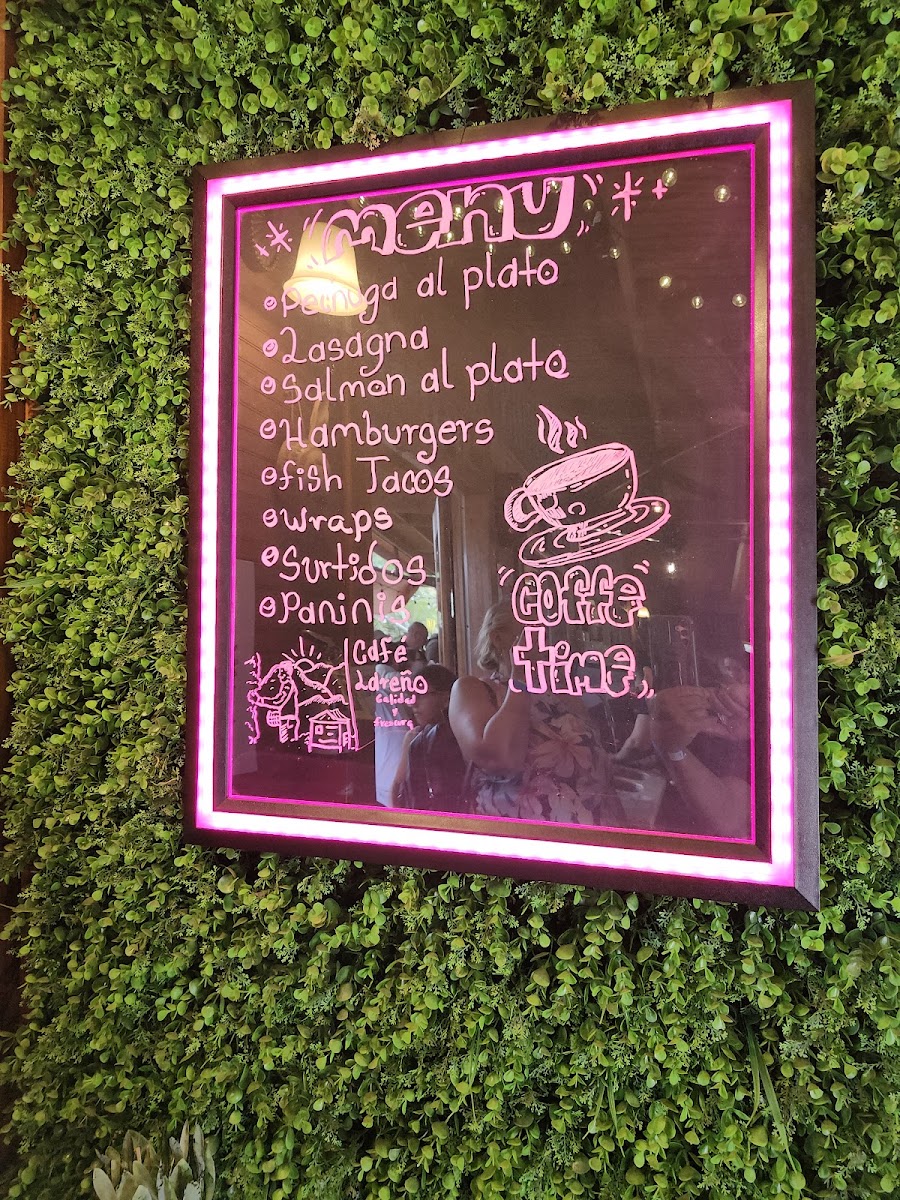 menu
Pechuga al plato
Lasagna
Salmon al plato
Hamburgers
fish Tacos
wraps
Surtidos
Paninis
Café
Lareño
Calidad
y
frescura
coffe
time